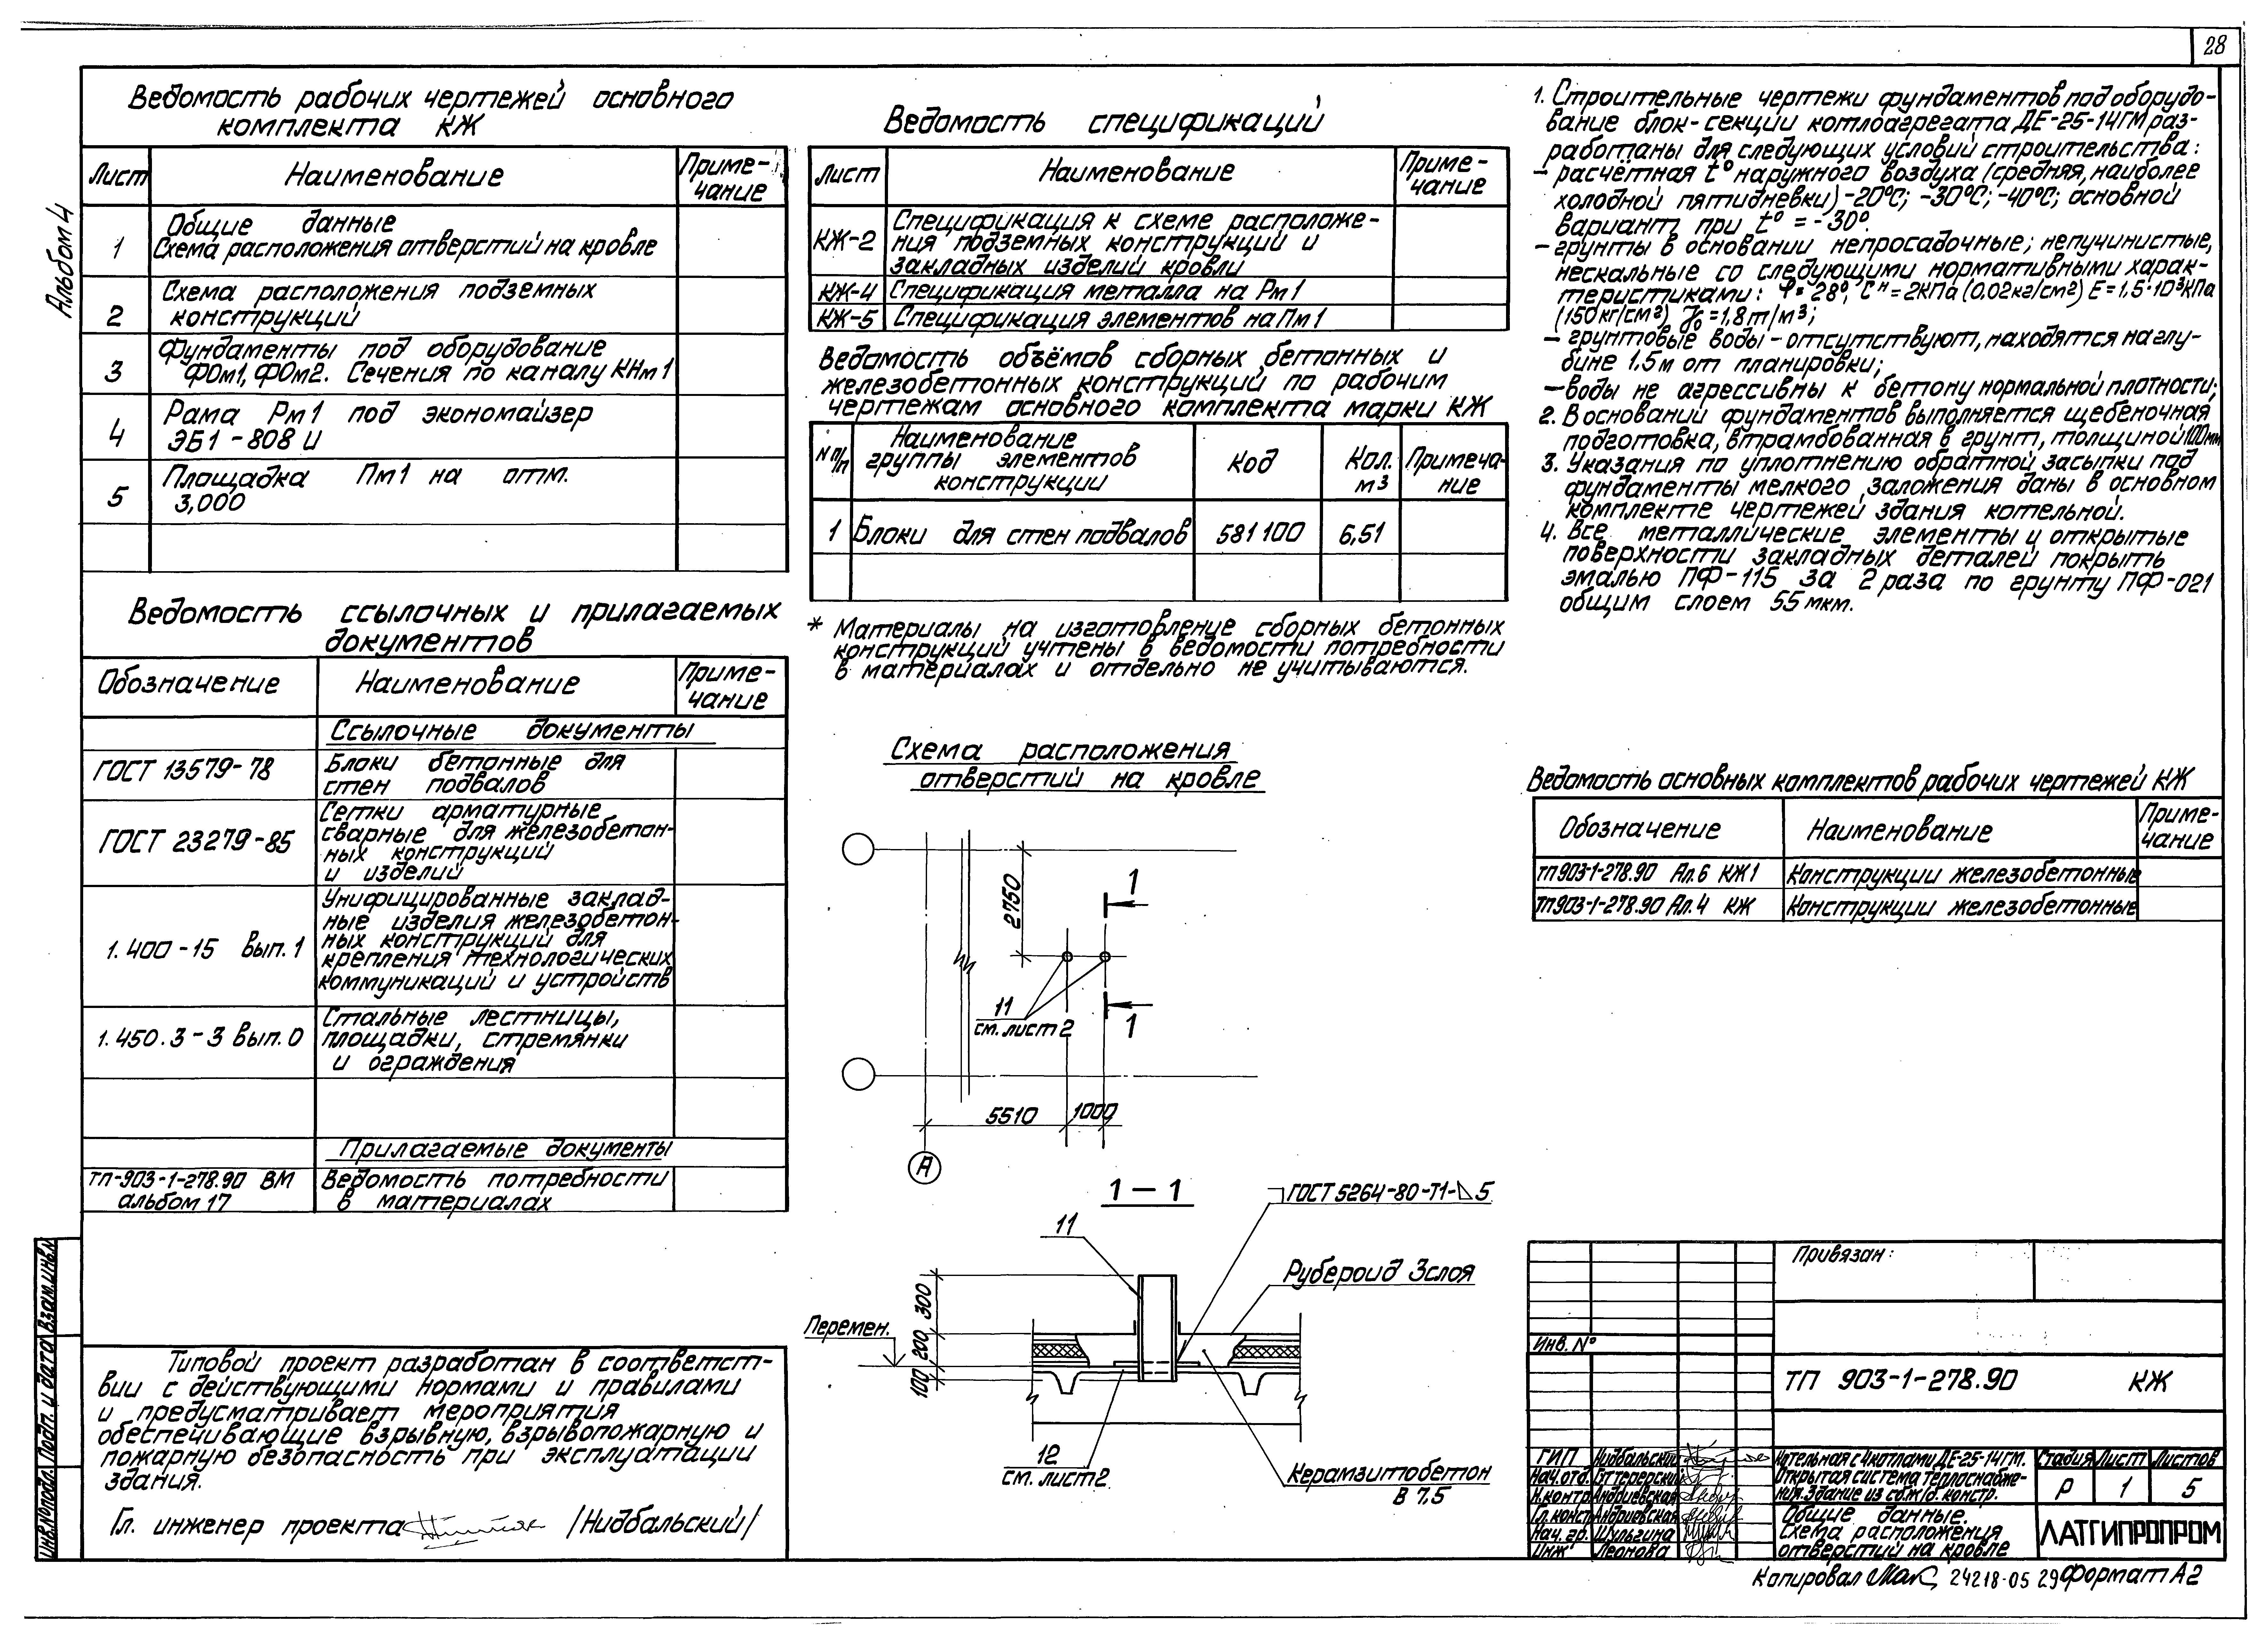 28
Альбом 4
Ведомость рабочих чертежей основного
комплекта КЖ
Лист Наименование Приме-
чание
1 Общие данные
Схема расположения отверстий на кровле
2 Схема расположения подземных
конструкций
3 Фундаменты под оборудование
ФОм1, ФОм2. Сечения по каналу КНм1
4 Рама Рм1 под экономайзер
ЭБ1-808 И
5 Площадка Пм1 на отм.
3,000
Ведомость ссылочных и прилагаемых
документов
Обозначение Наименование Приме-
чание
Ссылочные документы
ГОСТ 13579-78 Блоки бетонные для
стен подвалов
ГОСТ 23279-85 Сетки арматурные
сварные для железобетон-
ных конструкций
и изделий
1.400-15 Вып.1 Унифицированные заклад-
ные изделия железобетон-
ных конструкций для
крепления технологических
коммуникаций и устройств
1.450.3-3 Вып.0 Стальные лестницы,
площадки, стремянки
и ограждения
Прилагаемые документы
ТП-903-1-278.90 ВМ
альбом 17
Ведомость потребности
в материалах
Типовой проект разработан в соответст-
вии с действующими нормами и правилами
и предусматривает мероприятия
обеспечивающие взрывную, взрывопожарную и
пожарную безопасность при эксплуатации
здания.
Гл. инженер проекта /Нидбальский/
Инв.№подл. Подп. и дата Взам.инв.№
Ведомость спецификаций
Лист Наименование Приме-
чание
КЖ-2 Спецификация к схеме расположе-
ния подземных конструкций и
закладных изделий кровли
КЖ-4 Спецификация металла на Рм1
КЖ-5 Спецификация элементов на Пм1
Ведомость объёмов сборных бетонных и
железобетонных конструкций по рабочим
чертежам основного комплекта марки КЖ
N п/п Наименование
группы элементов
конструкции
Код Кол.
м³
Примеча-
ние
1 Блоки для стен подвалов 581 100 6,51
* Материалы на изготовление сборных бетонных
конструкций учтены в ведомости потребности
в материалах и отдельно не учитываются.
Схема расположения
отверстий на кровле
2750
1
11
см. лист 2
1
5510 1000
А
1-1
ГОСТ 5264-80-Т1-⊿5
11
Рубероид 3слоя
300
200
100
Перемен.
12
см. лист 2
Керамзитобетон
В 7,5
1. Строительные чертежи фундаментов под оборудо-
вание блок-секции котлоагрегата ДЕ-25-14ГМ раз-
работаны для следующих условий строительства:
- расчётная t° наружного воздуха (средняя, наиболее
холодной пятидневки) -20°С; -30°С; -40°С; основной
вариант при t° = -30°.
- грунты в основании непросадочные; непучинистые,
нескальные со следующими нормативными харак-
теристиками: φ = 28°, Сᴴ = 2КПа (0,02кг/см²) Е = 1,5·10³кПа
(150кг/см²) γ₀ = 1,8т/м³;
- грунтовые воды - отсутствуют, находятся на глу-
бине 1.5м от планировки;
- воды не агрессивны к бетону нормальной плотности;
2. В основании фундаментов выполняется щебеночная
подготовка, втрамбованная в грунт, толщиной 100мм
3. Указания по уплотнению обратной засыпки под
фундаменты мелкого заложения даны в основном
комплекте чертежей здания котельной.
4. Все металлические элементы и открытые
поверхности закладных деталей покрыть
эмалью ПФ-115 за 2 раза по грунту ПФ-021
общим слоем 55 мкм.
Ведомость основных комплектов рабочих чертежей КЖ
Обозначение Наименование Приме-
чание
ТП903-1-278.90 Ал.6 КЖ1 Конструкции железобетонные
ТП903-1-278.90 Ал.4 КЖ Конструкции железобетонные
Привязан:
Инв. №
ТП 903-1-278.90 КЖ
ГИП Нидбальский
Нач.отд.
Н.контр Андриевская
Гл.конст Андриевская
Нач. гр. Шульгина
Инж Леонова
Котельная с 4 котлами ДЕ-25-14ГМ.
Открытая система теплоснабже-
ния. Здание из сб.ж/б. констр.
Стадия Лист Листов
Р 1 5
Общие данные.
Схема расположения
отверстий на кровле
ЛАТГИПРОПРОМ
Копировал 24218-05 29 Формат А2